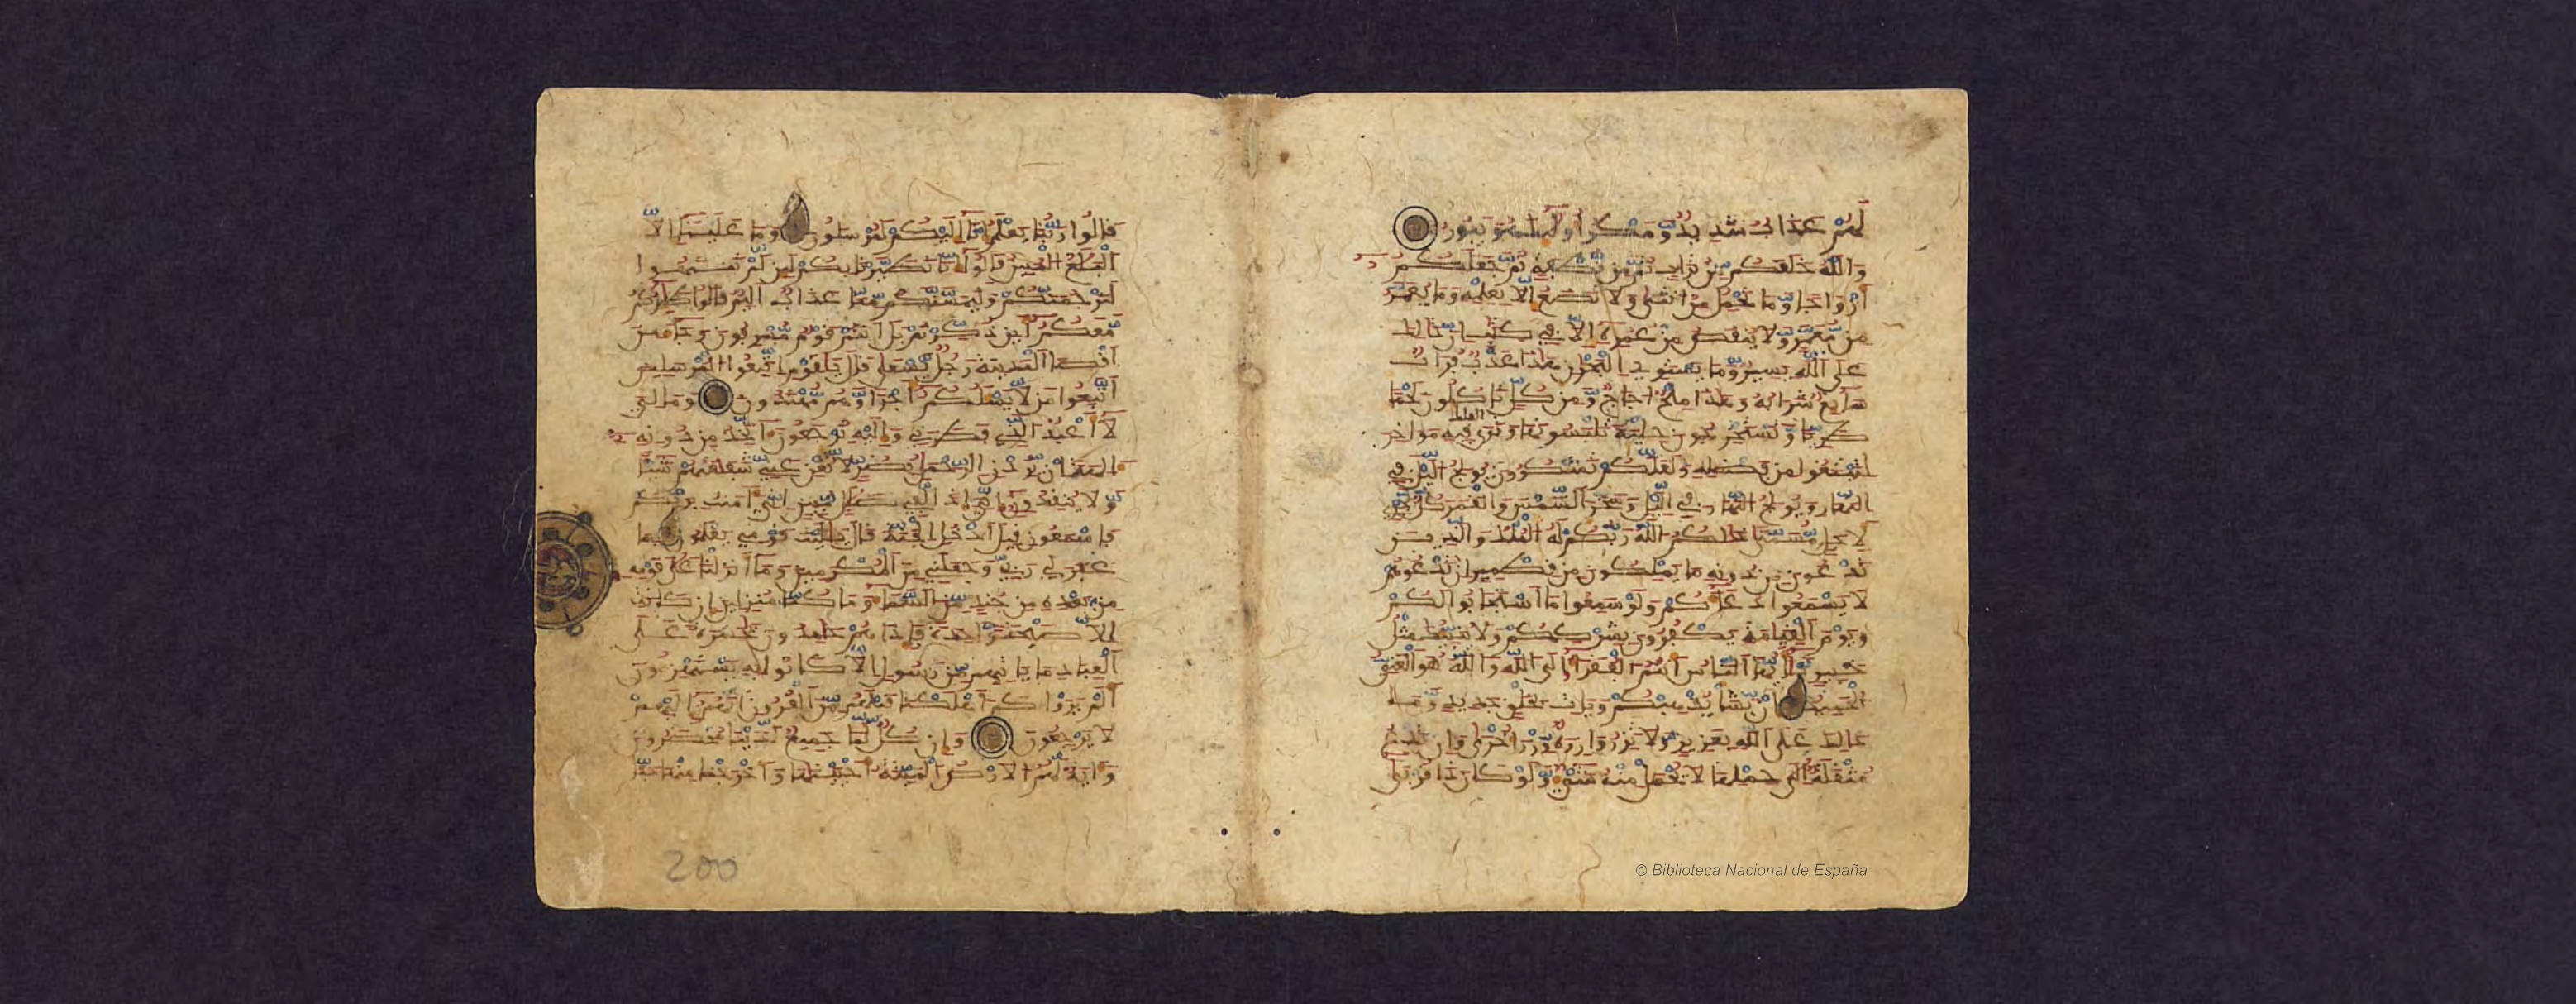 لهم عذاب شديد ومكر أولئك هو يبور
والله خلقكم من تراب ثم من نطفة ثم جعلكم
أزواجا وما تحمل من أنثى ولا تضع إلا بعلمه وما يعمر
من معمر ولا ينقص من عمره إلا في كتاب إن ذلك
على الله يسير وما يستوي البحران هذا عذب فرات
سايغ شرابه وهذا ملح أجاج ومن كل تاكلون لحما
طريا وتستخرجون حلية تلبسونها وترى الفلك فيه مواخر
لتبتغوا من فضله ولعلكم تشكرون يولج الليل في
النهار ويولج النهار في الليل وسخر الشمس والقمر كل يجري
لأجل مسمى ذلكم الله ربكم له الملك والذين
تدعون من دونه ما يملكون من قطمير إن تدعوهم
لا يسمعوا دعاءكم ولو سمعوا ما استجابوا لكم
ويوم القيامة يكفرون بشرككم ولا ينبئك مثل
خبير يأيها الناس أنتم الفقراء إلى الله والله هو الغني
الحميد إن يشأ يذهبكم ويات بخلق جديد وما
ذلك على الله بعزيز ولا تزر وازرة وزر أخرى وإن تدع
مثقلة إلى حملها لا يحمل منه شيء ولو كان ذا قربى
قالوا ربنا يعلم إنا إليكم لمرسلون وما علينا إلا
البلغ المبين قالوا إنا تطيرنا بكم لين لم تنتهوا
لنرجمنكم وليمسنكم منا عذاب أليم قالوا طيركم
معكم أين ذكرتم بل أنتم قوم مسرفون وجاء من
أقصا المدينة رجل يسعى قال يقوم اتبعوا المرسلين
اتبعوا من لا يسلكم أجرا وهم مهتدون وما لي
لا أعبد الذي فطرني وإليه ترجعون أتخذ من دونه
الهة إن يردن الرحمن بضر لا تغن عني شفعتهم شيا
ولا ينقذون إني إذا لفي ضلل مبين إني آمنت بربكم
فاسمعون قيل ادخل الجنة قال يليت قومي يعلمون بما
غفر لي ربي وجعلني من المكرمين وما أنزلنا على قومه
من بعده من جند من السماء وما كنا منزلين إن كانت
إلا صيحة واحدة فإذا هم خامدون يحسرة على
العباد ما ياتيهم من رسول إلا كانوا به يستهزءون
ألم يروا كم أهلكنا قبلهم من القرون أنهم إليهم
لا يرجعون وإن كل لما جميع لدينا محضرون
وآية لهم الأرض الميتة أحيينها وأخرجنا منها حبا
200
© Biblioteca Nacional de España